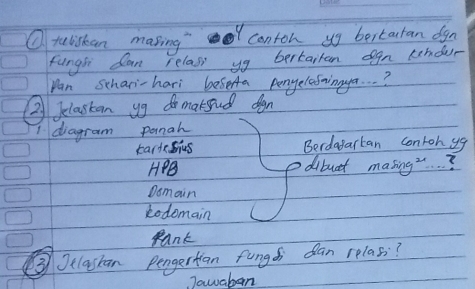 ① tuliskan masing" 4 Contoh yg berkaitan dgn
fungsi dan relasi yg berkaitan dgn kehidu-
pan sehari-hari beserta penyelesainnya...?
② Jelaskan yg dimaksud dgn
1. diagram panah
kartesius
HPB
Domain
kodomain
Rank
Berdasarkan contoh yg
dibuat masing"....?
③ Jelaskan Pengertian fungsi dan relasi?
Jawaban